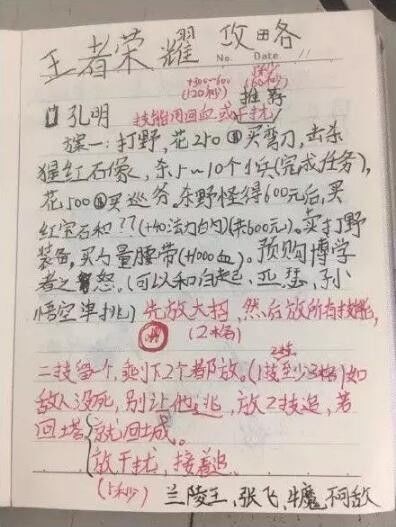 王者荣耀 攻略
No. Date
+300~600
(120秒)
推荐
孔明 技能用回血或干扰
一:打野,花250买弯刀,击杀
猩红石像,杀5~10个小兵(完成任务),
花500买巡守.杀野怪得600元后,买
红宝石和??(+40法力白勺)(共600元).卖打野
装备,买力量腰带(+1000血)。预购博学
者之怒。(可以和白起、亚瑟、孙
悟空单挑)先放大招,然后放所有技能,
(2格)
二技留一个,剩下2个都放。(1技至少3格)如
敌人没死,别让他逃,放2技追,若
回塔 就回城。
放干扰,接着追
(5秒) 兰陵王、张飞、牛魔、阿敌